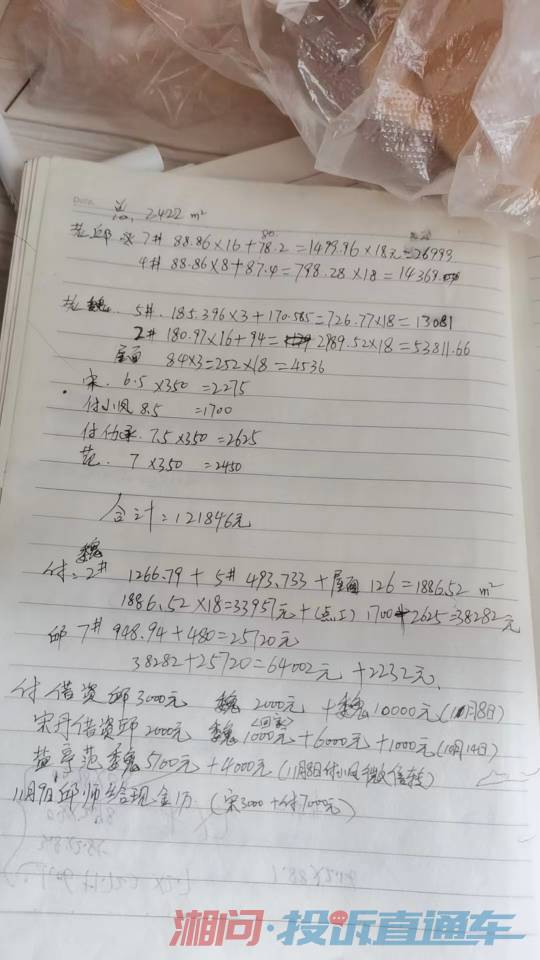 总, 2422 m²
邱 7# 88.86×16+78.2=1499.96×18=26993
4# 88.86×8+87.4=798.28×18=14369
魏 5#. 185.396×3+170.585=726.77×18=13081
2# 180.97×16+94= 2989.52×18=53811.66
屋面 84×3=252×18=4536
宋. 6.5×350=2275
付小凤 8.5 =1700
付 7.5×350=2625
范. 7×350=2450
合计:121846元
魏
付: 2# 1266.79+5# 493.733+屋面 126=1886.52 m²
1886.52×18=33957元+(点工) 1700+2625=38282元
邱 7# 948.94+480=25720元
38282+25720=64002元 +2232元
付借资邱3000元 魏2000元 +魏10000元(10月8日)
宋丹借资邱2000元 魏1000元+6000元+1000元(10月14日)
范魏5700元+4000元(11月8日付小凤微信转)
11月9日邱师给现金1万 (宋3000+付7000元)
湘问·投诉直通车